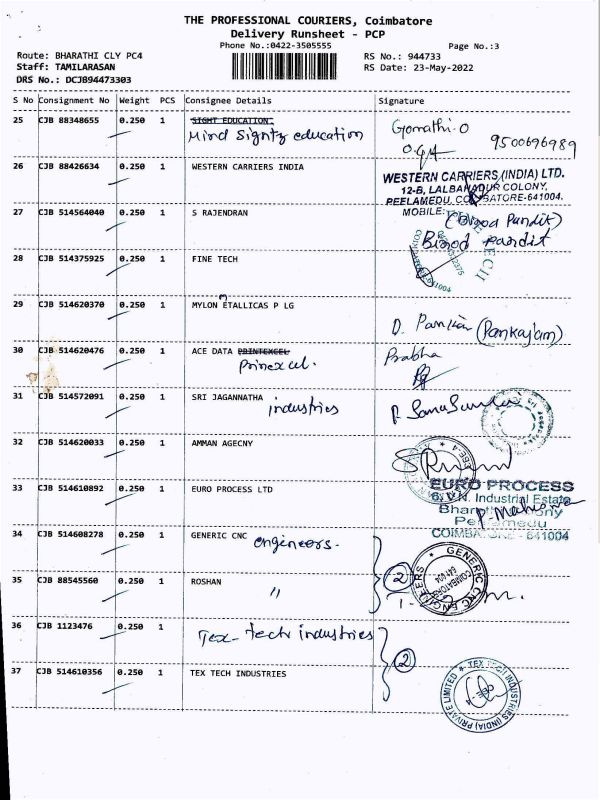 THE PROFESSIONAL COURIERS, Coimbatore
Delivery Runsheet - PCP
Phone No.:0422-3505555
Page No.:3
Route: BHARATHI CLY PC4
RS No.: 944733
Staff: TAMILARASAN
RS Date: 23-May-2022
DRS No.: DCJB94473303
S No Consignment No Weight PCS Consignee Details Signature
25 CJB 88348655 0.250 1 SIGHT EDUCATION Gomathi.O
Mind Sightz education 9500696989
26 CJB 88426634 0.250 1 WESTERN CARRIERS INDIA
WESTERN CARRIERS (INDIA) LTD.
12-B, LALBAHADUR COLONY,
PEELAMEDU, COIMBATORE-641004.
27 CJB 514564040 0.250 1 S RAJENDRAN MOBILE:
(Binod Pandit)
Binod pandit
28 CJB 514375925 0.250 1 FINE TECH
29 CJB 514620370 0.250 1 MYLON ETALLICAS P LG
m
D. (Pankajam)
30 CJB 514620476 0.250 1 ACE DATA PRINTEXCEL Prabha
Prinexcel.
31 CJB 514572091 0.250 1 SRI JAGANNATHA
industries
32 CJB 514620033 0.250 1 AMMAN AGECNY
33 CJB 514610892 0.250 1 EURO PROCESS LTD
EURO PROCESS
6, V.N. Industrial Estate
Bharathi Colony
Peelamedu
COIMBATORE - 641004
34 CJB 514608278 0.250 1 GENERIC CNC engineers.
GENERIC CNC ENGINEERS
COIMBATORE
641 004
35 CJB 88545560 0.250 1 ROSHAN 2
"
36 CJB 1123476 0.250 1
Tex-tech industries
2
37 CJB 514610356 0.250 1 TEX TECH INDUSTRIES
TEX TECH INDUSTRIES (INDIA) PRIVATE LIMITED
CBE - 4